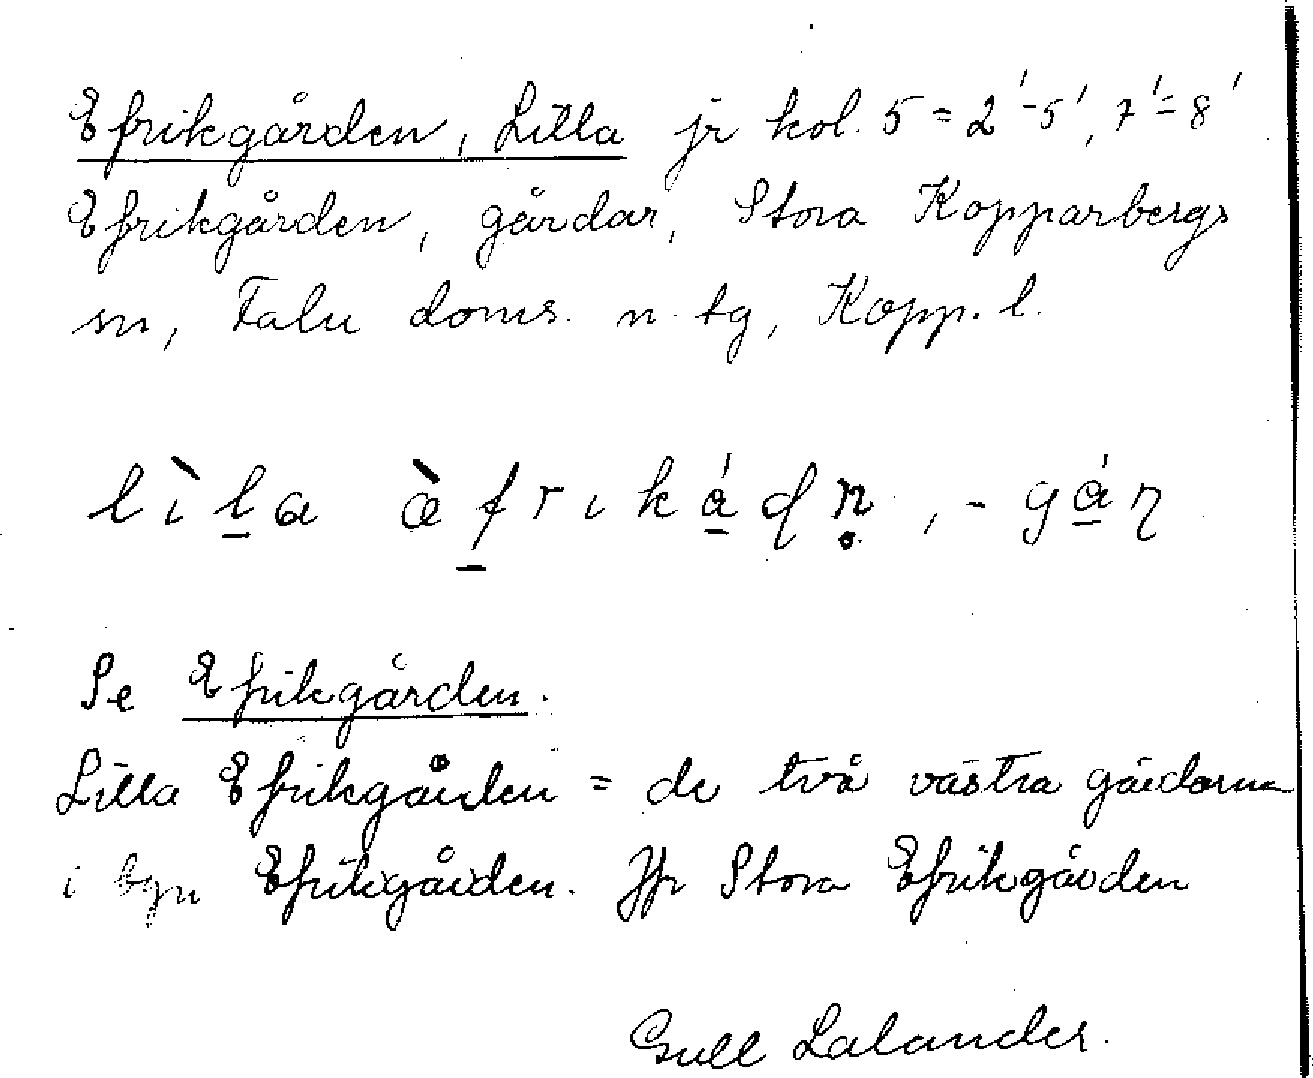 Efrikgården, Lilla jr kol. 5 = 2'-5', 7'=8'
Efrikgården, gårdar, Stora Kopparbergs
sn, Falu doms. n. tg, Kopp. l.
lìl̠a æ̀f̠rɩká̠dn̥, -gá̠ɳ
Se Efrikgården.
Lilla Efrikgården = de två västra gårdarna
i byn Efrikgården. Jfr Stora Efrikgården
Gull Lalander.